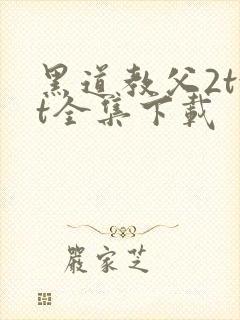 黑道教父2tx
t全集下載
嚴家芝